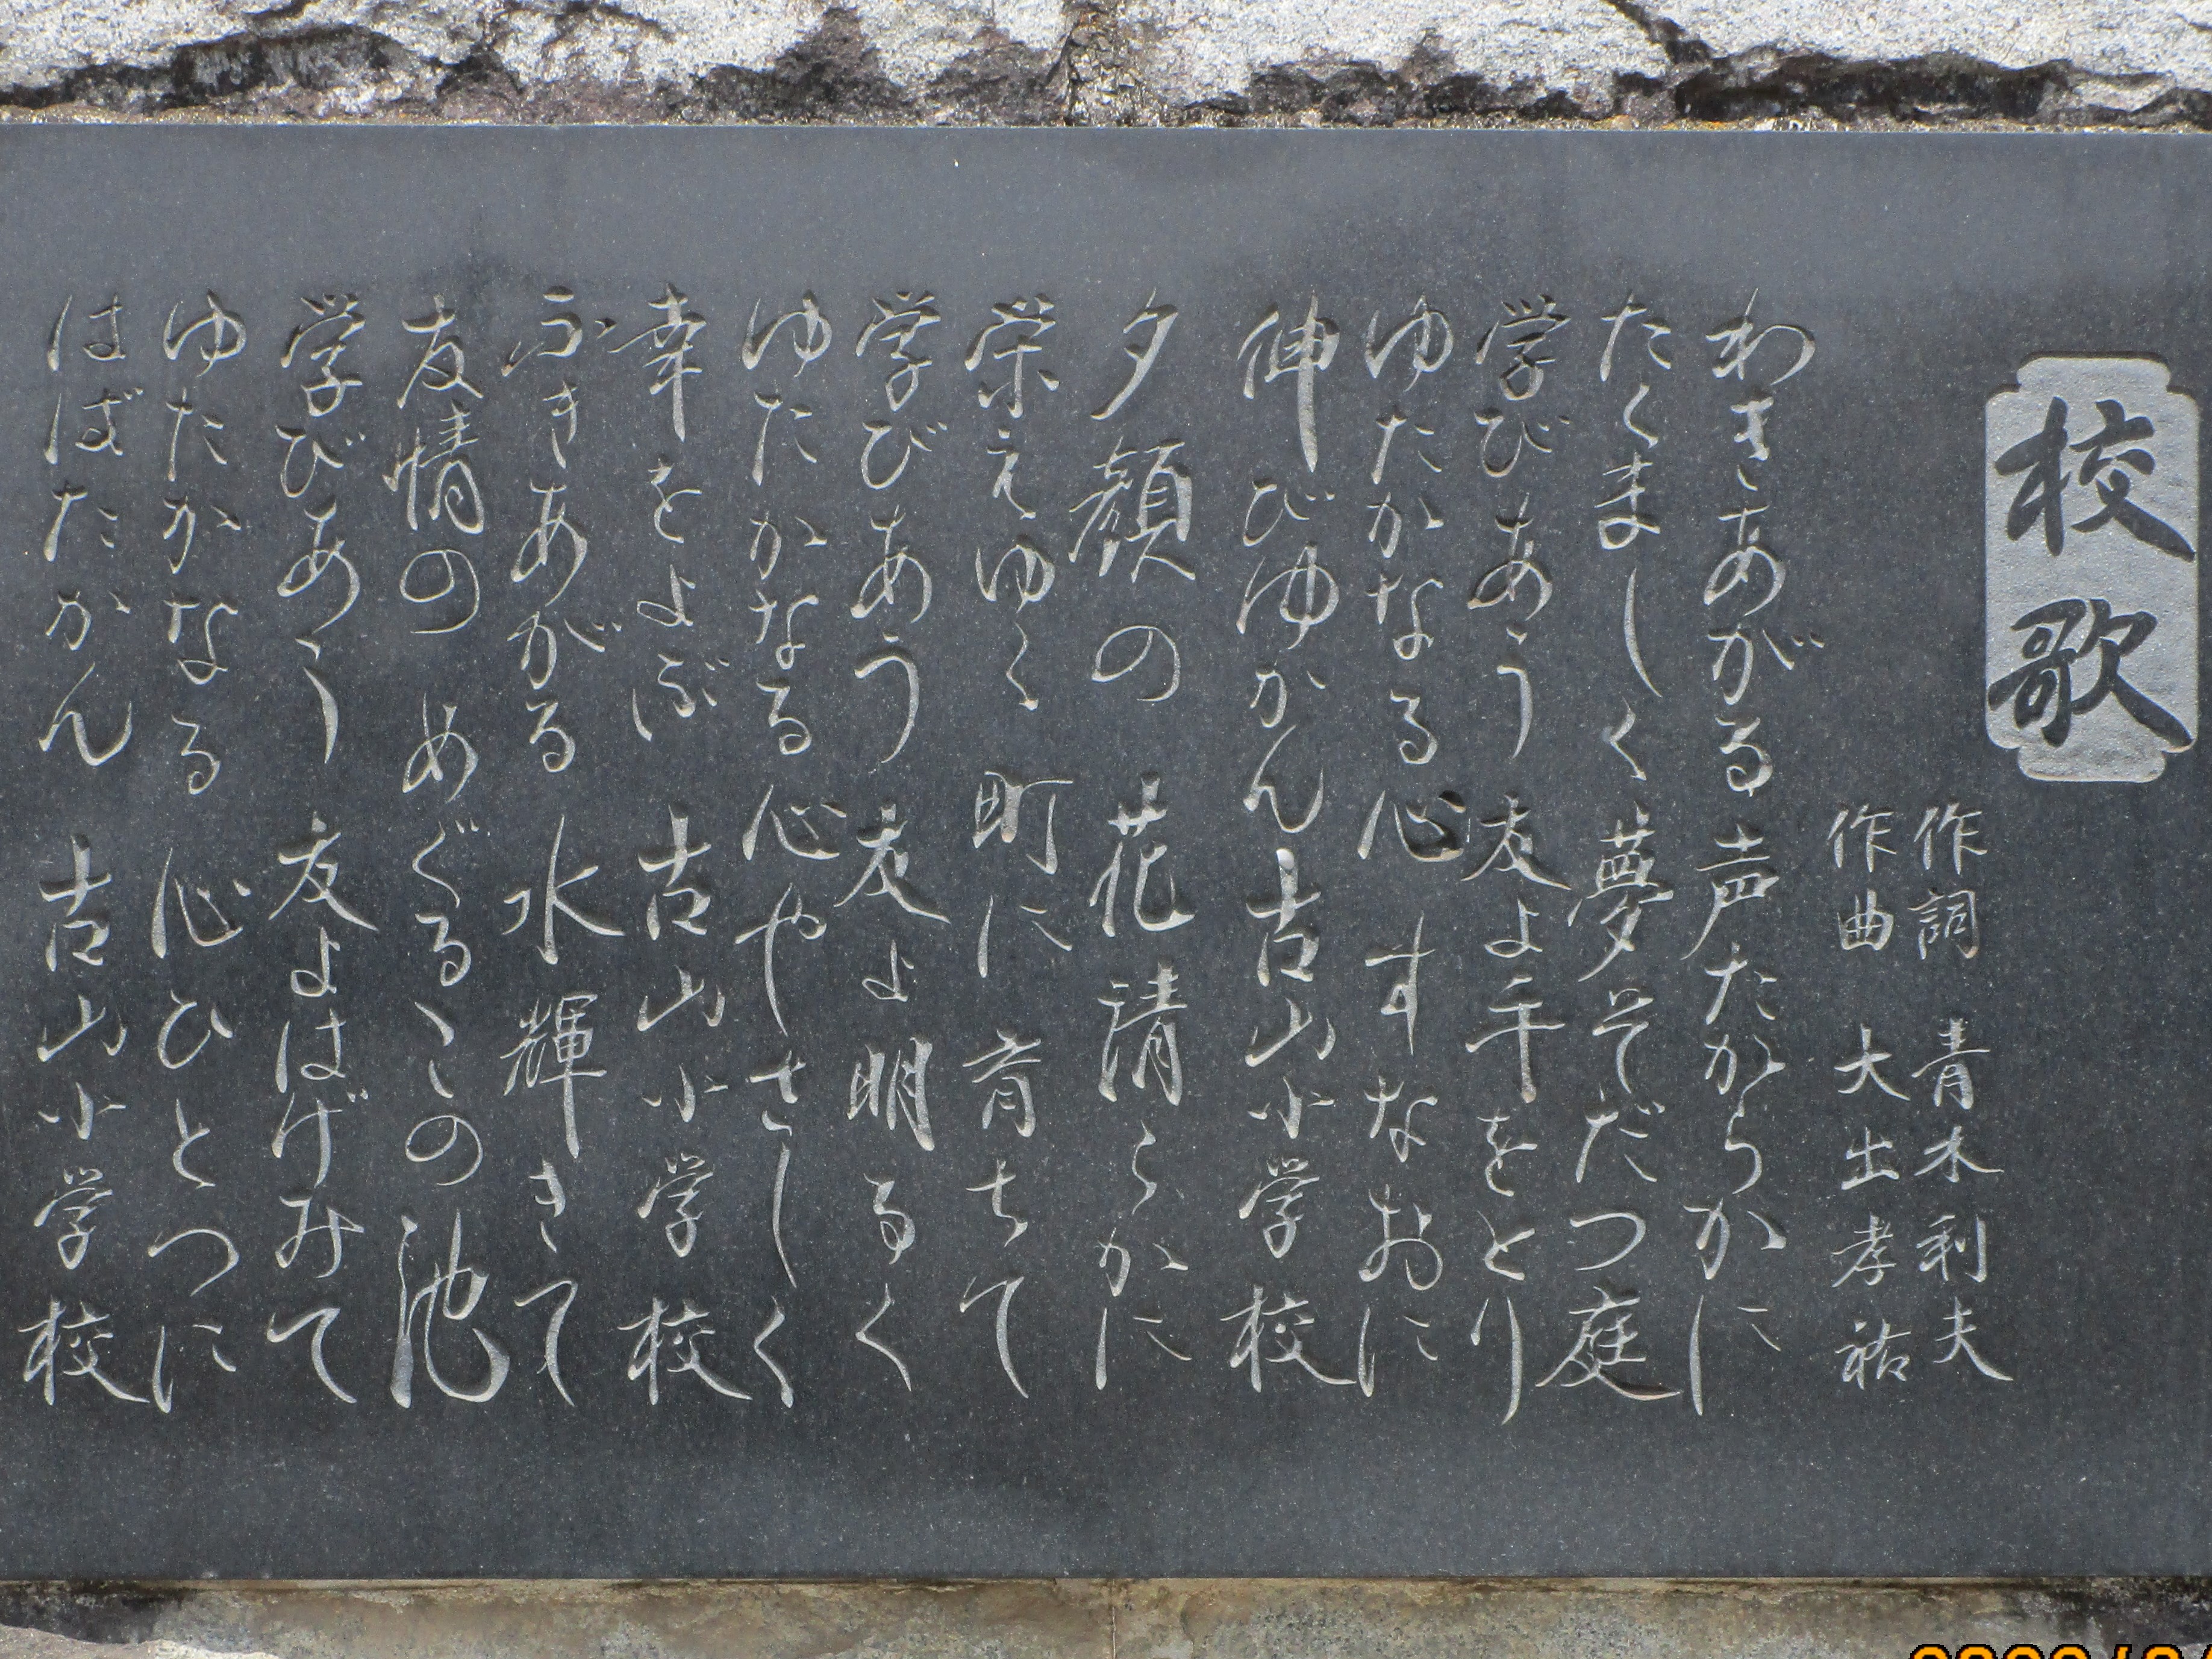 校歌
作詞 青木利夫
作曲 大出孝祐
わきあがる声たからかに
たくましく夢そだつ庭
学びあう友よ手をとり
ゆたかなる心すなおに
伸びゆかん古山小学校
夕顔の花清らかに
栄えゆく町に育ちて
学びあう友よ明るく
ゆたかなる心やさしく
幸をよぶ古山小学校
ふきあがる水輝きて
友情のめぐるこの池
学びあう友よはげみて
ゆたかなる心ひとつに
はばたかん古山小学校